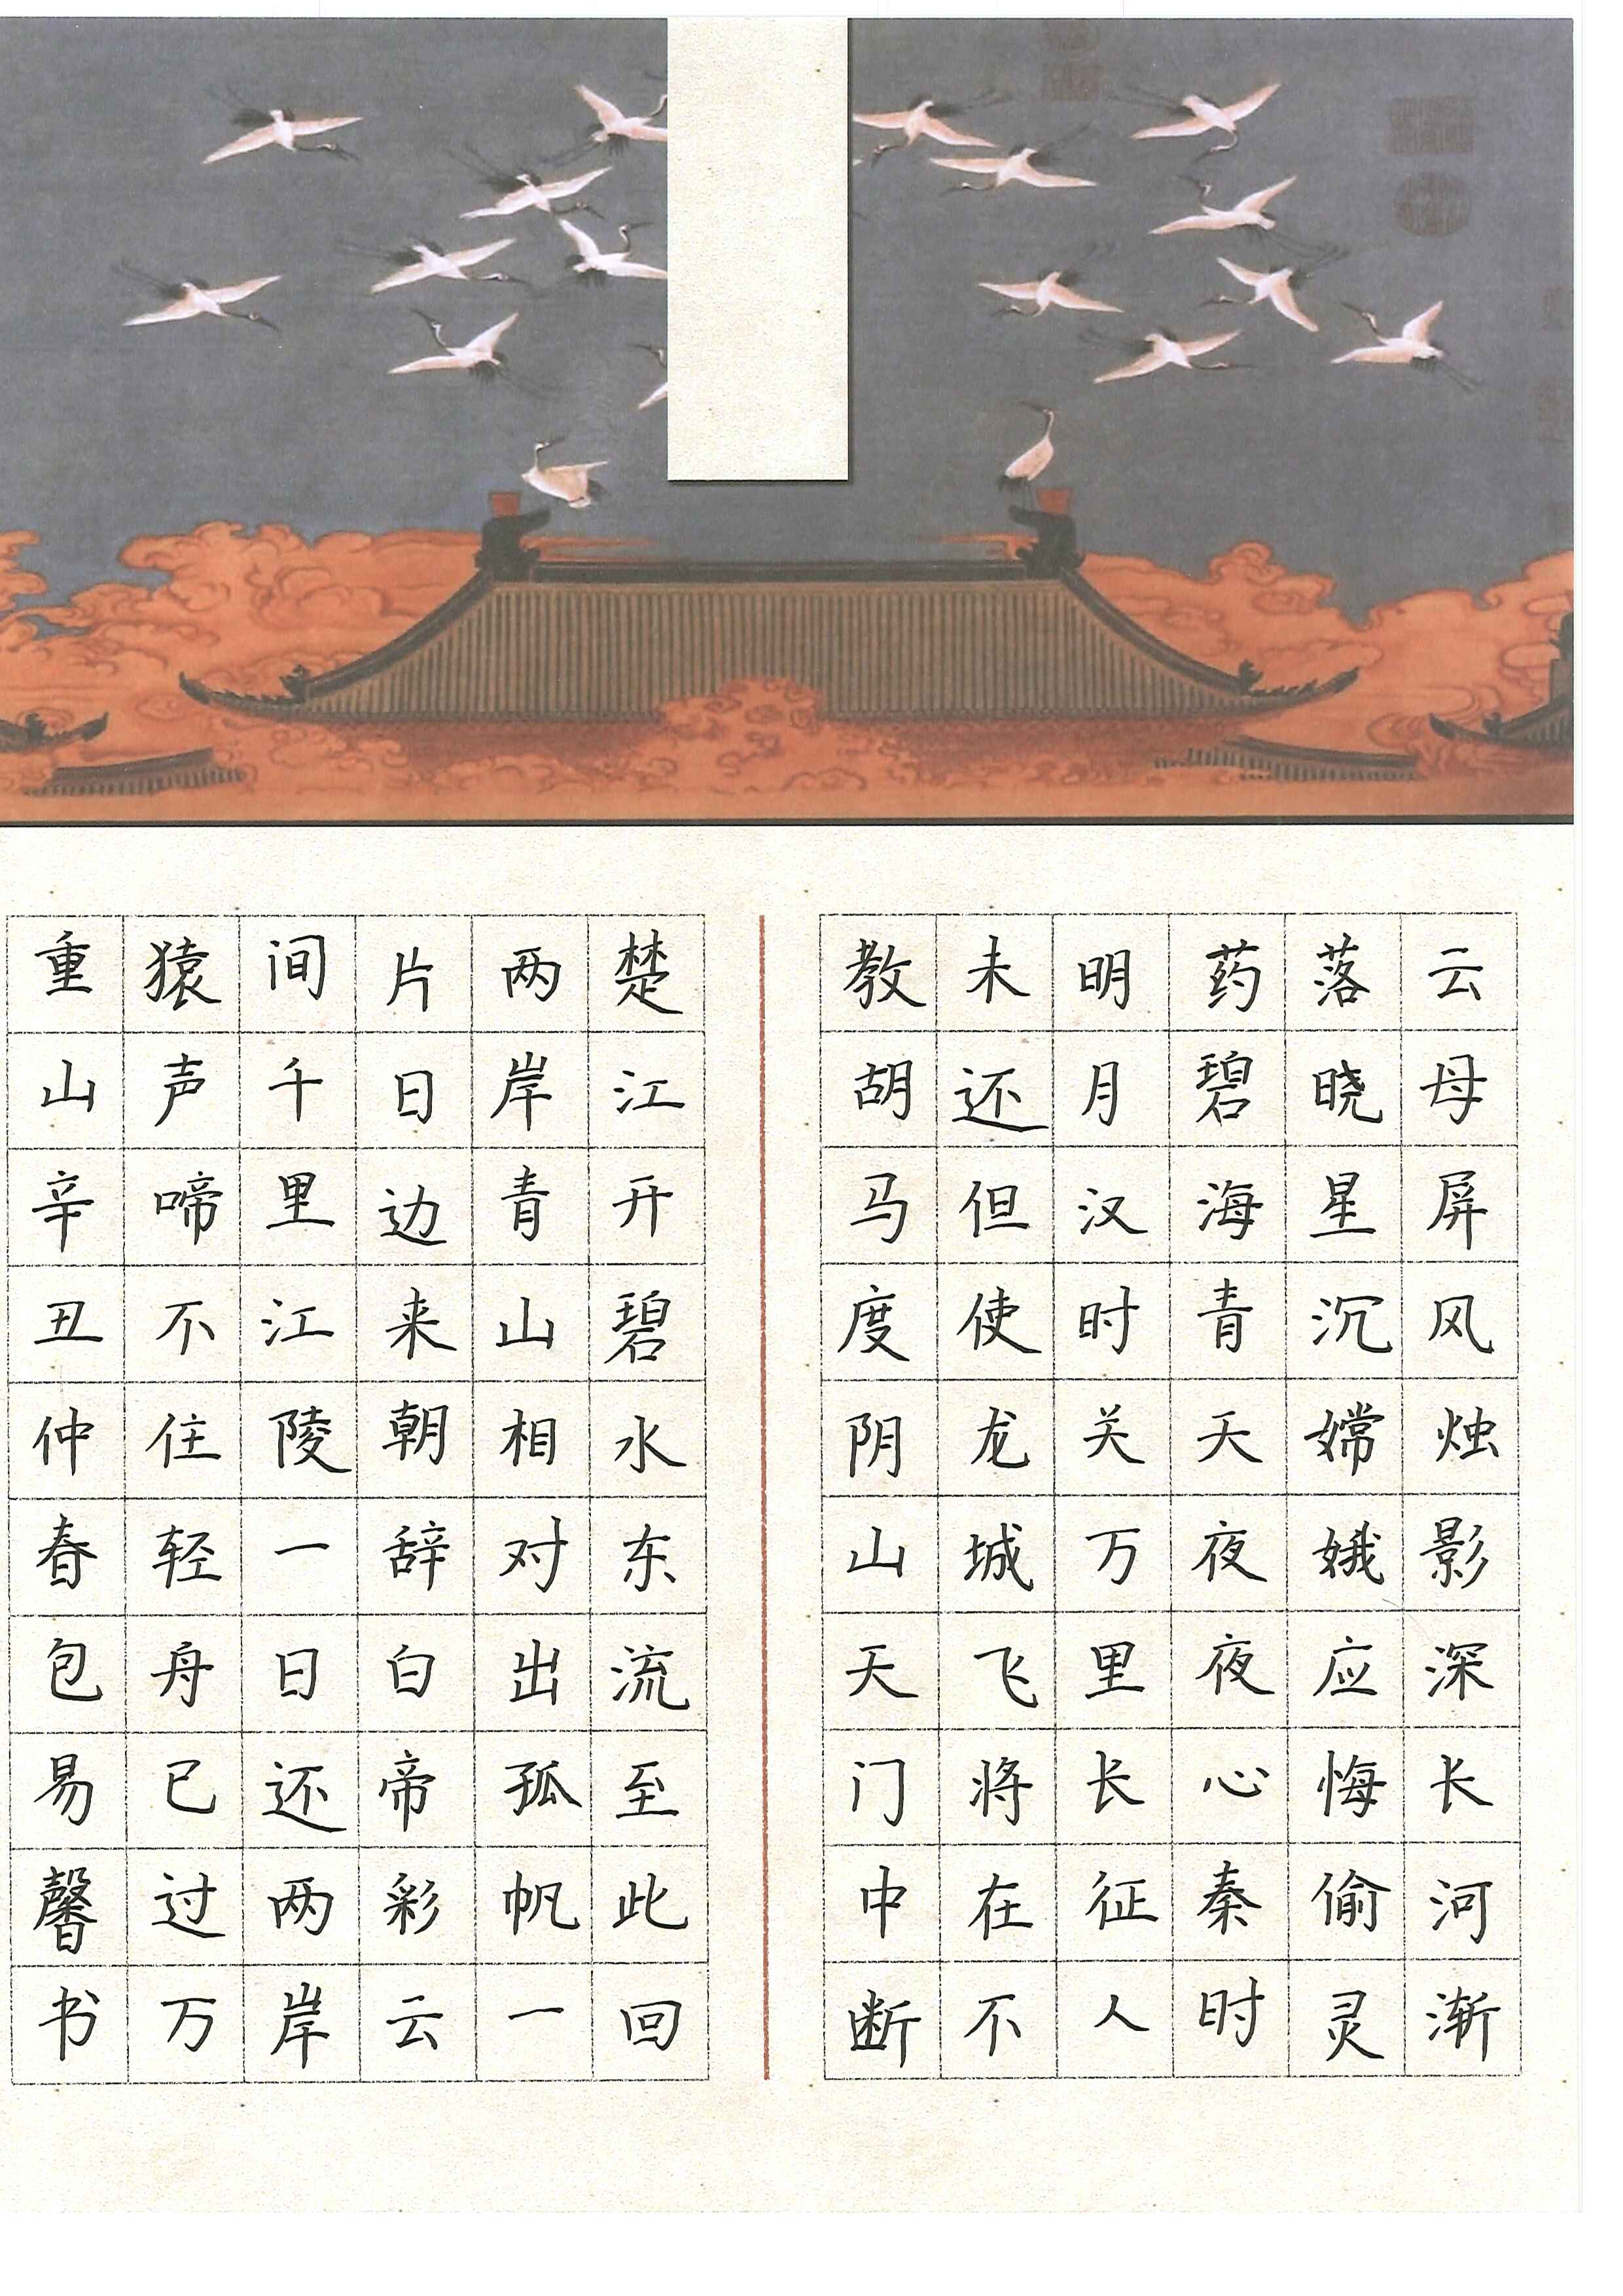 云母屏风烛影深长河渐
落晓星沉嫦娥应悔偷灵
药碧海青天夜夜心秦时
明月汉时关万里长征人
未还但使龙城飞将在不
教胡马度阴山天门中断
楚江开碧水东流至此回
两岸青山相对出孤帆一
片日边来朝辞白帝彩云
间千里江陵一日还两岸
猿声啼不住轻舟已过万
重山辛丑仲春包易馨书